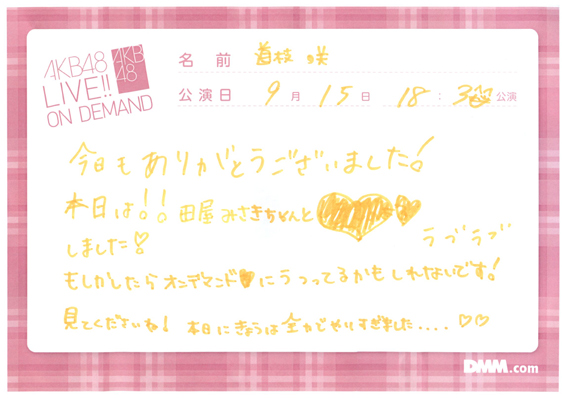 AKB48
LIVE!!
ON DEMAND
AKB
48
名前 道枝 咲
公演日 9月15日 18:30公演
今日もありがとうございました!
本日は!!田屋みさきちゃんと
ラブラブ
しました!
もしかしたらオンデマンドにうつってるかもしれないです!
見てくださいね! 本日にきょうは全力でやりすぎました....♡♡
DMM.com